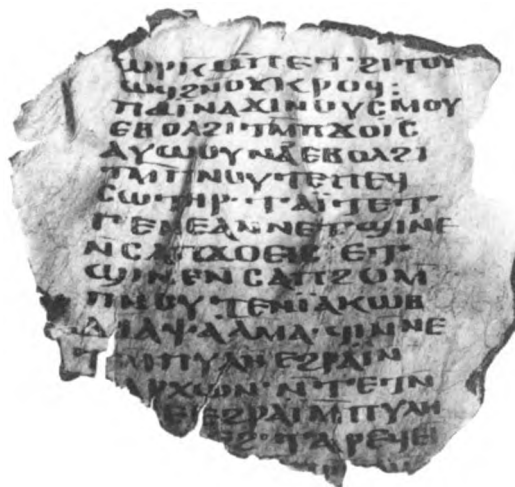 ⲱⲣⲕⲱⲡⲉⲧ·ϩⲓⲧⲟⲩ
ⲱϥϩⲛⲟⲩⲕⲣⲟϥ:
ⲡⲁⲓⲛⲁϫⲓⲛⲟⲩⲥⲙⲟⲩ
ⲉⲃⲟⲗϩⲓⲧⲙⲡϫⲟⲓⲥ
ⲁⲩⲱⲟⲩⲛⲁⲉⲃⲟⲗϩⲓ
ⲧⲙⲡⲛⲟⲩⲧⲉⲡⲉϥ
ⲥⲱⲧⲏⲣ·ⲧⲁⲓⲧⲉⲧ·
ⲅⲉⲛⲉⲁⲛⲛⲉⲧϣⲓⲛⲉ
ⲛⲥⲁⲡϫⲟⲉⲓⲥ ⲉⲧ·
ϣⲓⲛⲉⲛⲥⲁⲡϩⲟⲙ
ⲡⲛⲟⲩⲧⲉⲛⲓⲁⲕⲱⲃ
ⲇⲓⲁⲯⲁⲗⲙⲁ·ϥⲓⲛⲛⲉ
ⲧⲙⲡⲩⲗⲏⲉϩⲣⲁⲓⲛ
ⲁⲣⲭⲱⲛ·ⲛⲧⲉⲧⲛ
ⲉⲓⲉϩⲣⲁⲓⲙⲡⲩⲗⲏ
ⲧⲁⲣⲉϥⲉⲓ